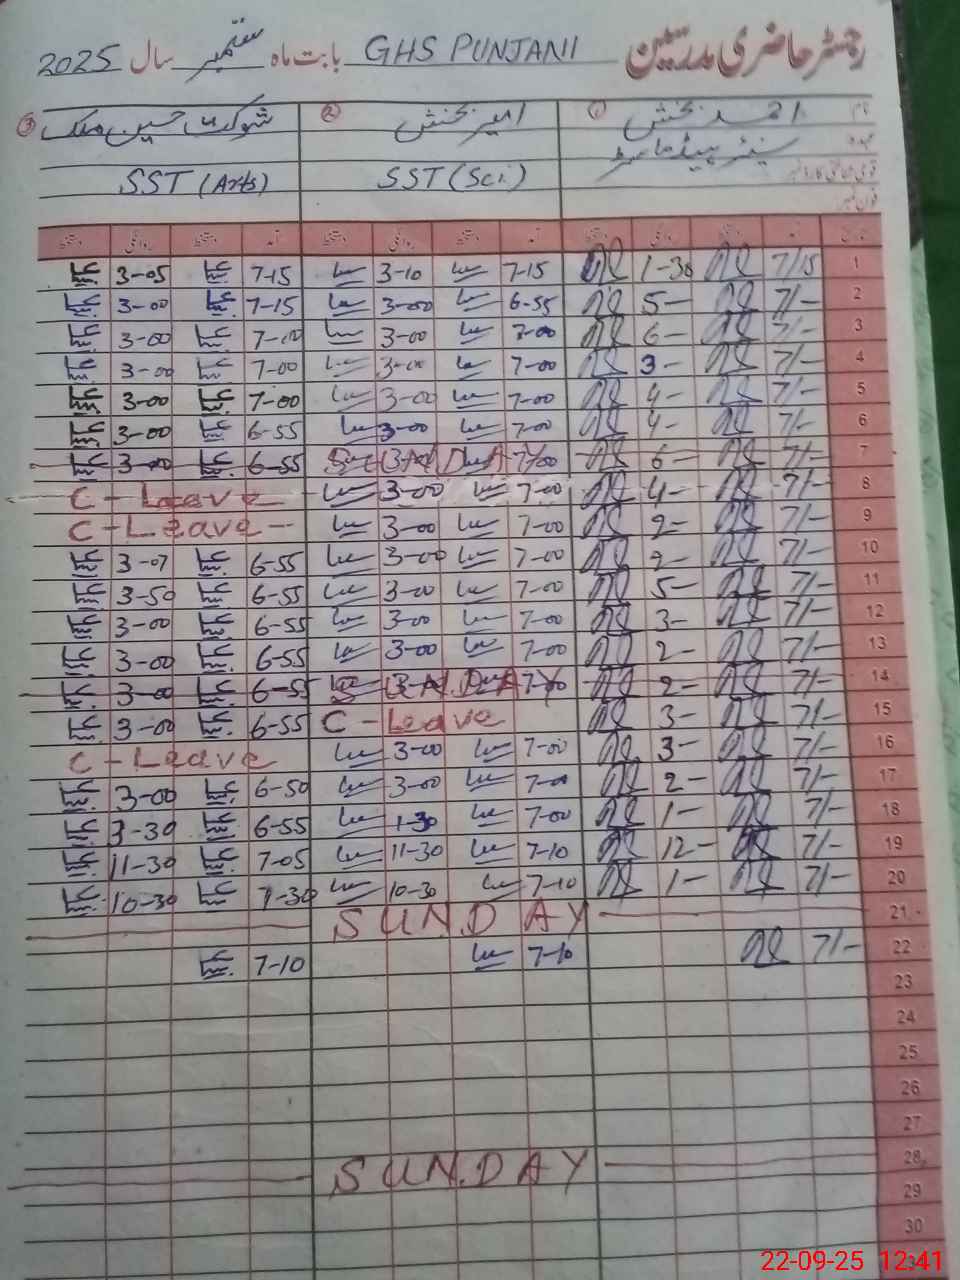 رجسٹر حاضری مدرسین GHS PUNJANI بابت ماہ ستمبر سال 2025
نام احمد بخش ① امیر بخش ② شوکت حسین ملک ③
عہدہ سینئر ہیڈ ماسٹر SST (Sci.) SST (Arts)
قومی شناختی کارڈ نمبر
فون نمبر
تاریخ آمد دستخط روانگی دستخط آمد دستخط روانگی دستخط آمد دستخط روانگی دستخط
3-05 7-15 3-10 7-15 1-30 7/15 1
3-00 7-15 3-00 6-55 5- 7/- 2
3-00 7-00 3-00 7-00 6- 7/- 3
3-00 7-00 3-00 7-00 3- 7/- 4
3-00 7-00 3-00 7-00 4- 7/- 5
3-00 6-55 3-00 7-00 4- 7/- 6
3-00 6-55 SUNDAY 7-00 6- 7/- 7
C-Leave 3-00 7-00 4- 7/- 8
C-Leave 3-00 7-00 2- 7/- 9
3-07 6-55 3-00 7-00 2- 7/- 10
3-50 6-55 3-00 7-00 5- 7/- 11
3-00 6-55 3-00 7-00 3- 7/- 12
3-00 6-55 3-00 7-00 2- 7/- 13
3-00 6-55 SUNDAY 7-00 2- 7/- 14
3-00 6-55 C-Leave 3- 7/- 15
C-Leave 3-00 7-00 3- 7/- 16
3-00 6-50 3-00 7-00 2- 7/- 17
3-30 6-55 1-30 7-00 1- 7/- 18
11-30 7-05 11-30 7-10 12- 7/- 19
10-30 7-30 10-30 7-10 1- 7/- 20
SUNDAY 21
7-10 7-10 7/- 22
23
24
25
26
27
SUNDAY 28
29
30
22-09-25 12:41